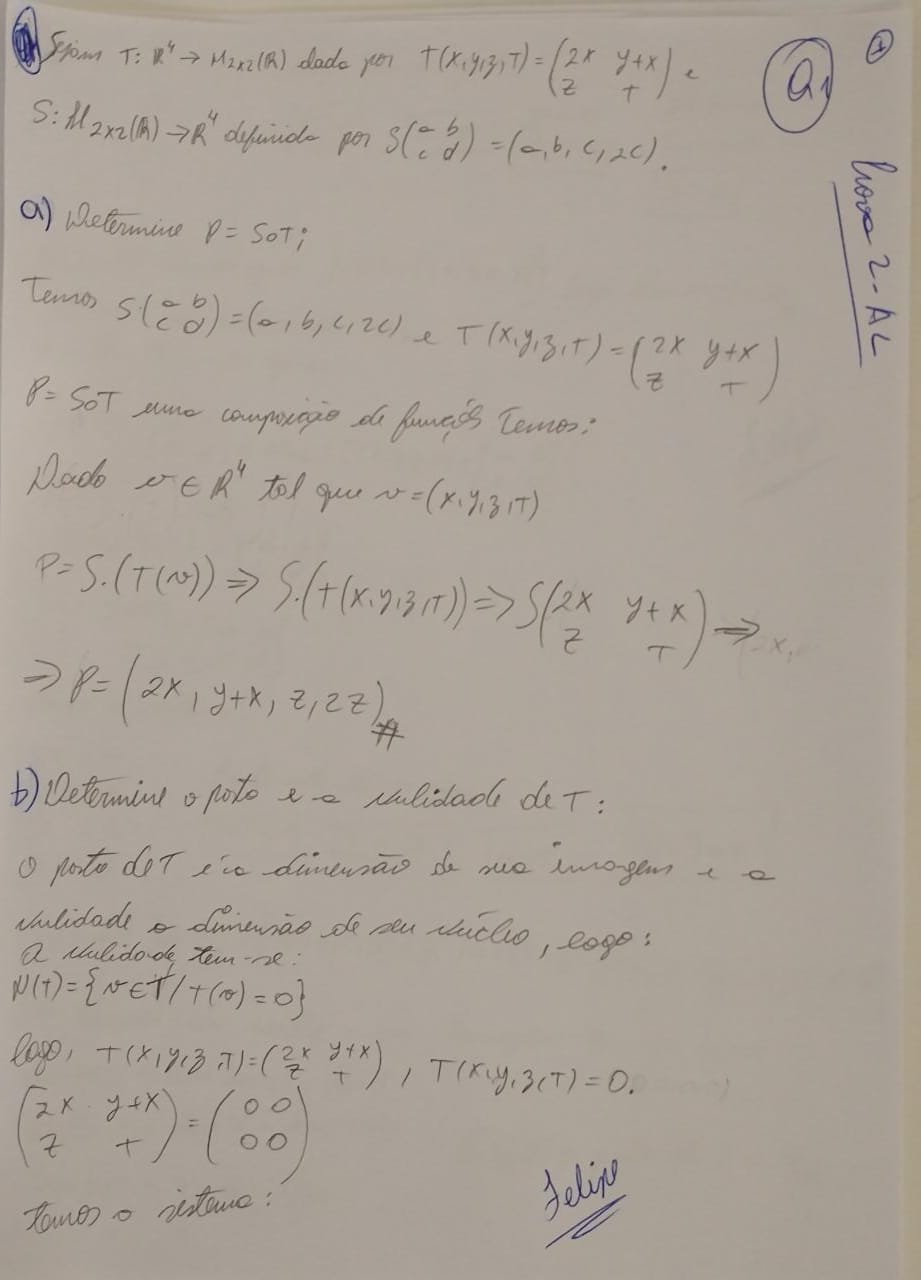 Sejam T: R⁴ → M₂ₓ₂(R) dada por T(x,y,z,T) = (2x y+x / z T) e
S: M₂ₓ₂(R) → R⁴ definida por S(a b / c d) = (a, b, c, 2c).
Q1
+
Prova 2 - AL
a) Determine P = SoT;
Temos S(a b / c d) = (a, b, c, 2c) e T(x,y,z,T) = (2x y+x / z T)
P = SoT uma composição de função Temos:
Dado v ∈ R⁴ tal que v = (x,y,z,T)
P = S.(T(v)) ⇒ S.(T(x,y,z,T)) ⇒ S(2x y+x / z T) ⇒
⇒ P = (2x, y+x, z, 2z) #
b) Determine o posto e a nulidade de T:
O posto de T é a dimensão de sua imagem e a
nulidade a dimensão de seu núcleo, logo:
A nulidade tem-se:
N(T) = {v ∈ T / T(v) = 0}
logo, T(x,y,z,T) = (2x y+x / z T), T(x,y,z,T) = 0.
(2x y+x / z T) = (0 0 / 0 0)
temos o sistema:
Felipe